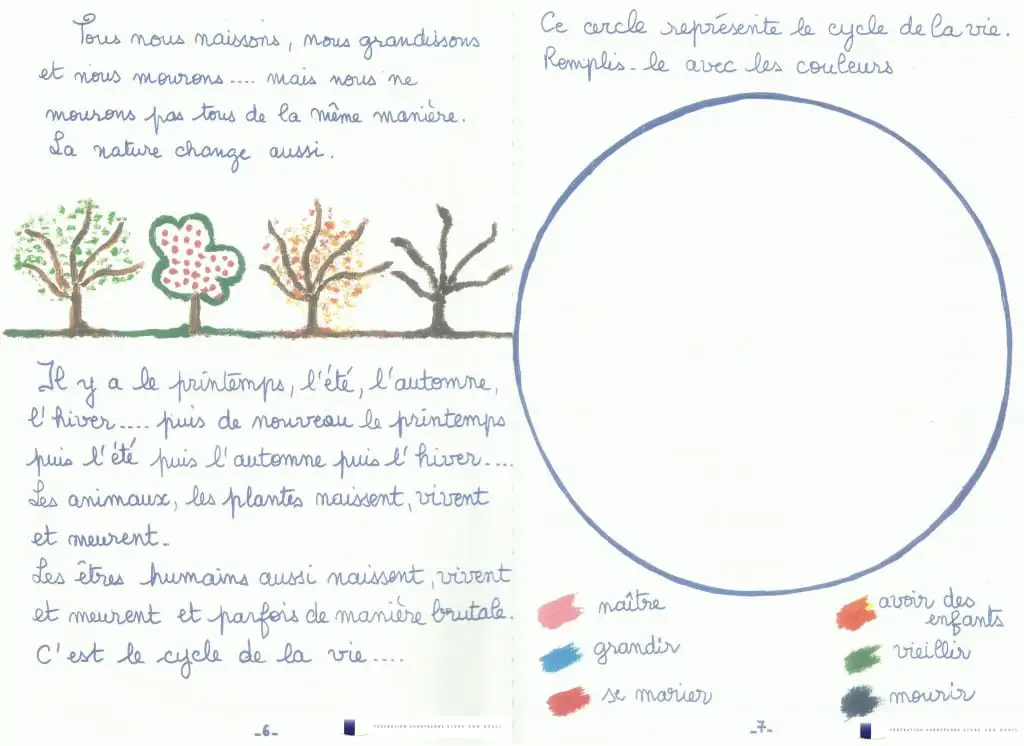 Tous nous naissons, nous grandissons
et nous mourons.... mais nous ne
mourons pas tous de la même manière.
La nature change aussi.
Il y a le printemps, l'été, l'automne,
l'hiver.... puis de nouveau le printemps
puis l'été puis l'automne puis l'hiver....
Les animaux, les plantes naissent, vivent
et meurent.
Les êtres humains aussi naissent, vivent
et meurent et parfois de manière brutale.
C'est le cycle de la vie....
-6-
FÉDÉRATION EUROPÉENNE VIVRE SON DEUIL
Ce cercle représente le cycle de la vie.
Remplis-le avec les couleurs
naître
grandir
se marier
avoir des
enfants
vieillir
mourir
-7-
FÉDÉRATION EUROPÉENNE VIVRE SON DEUIL